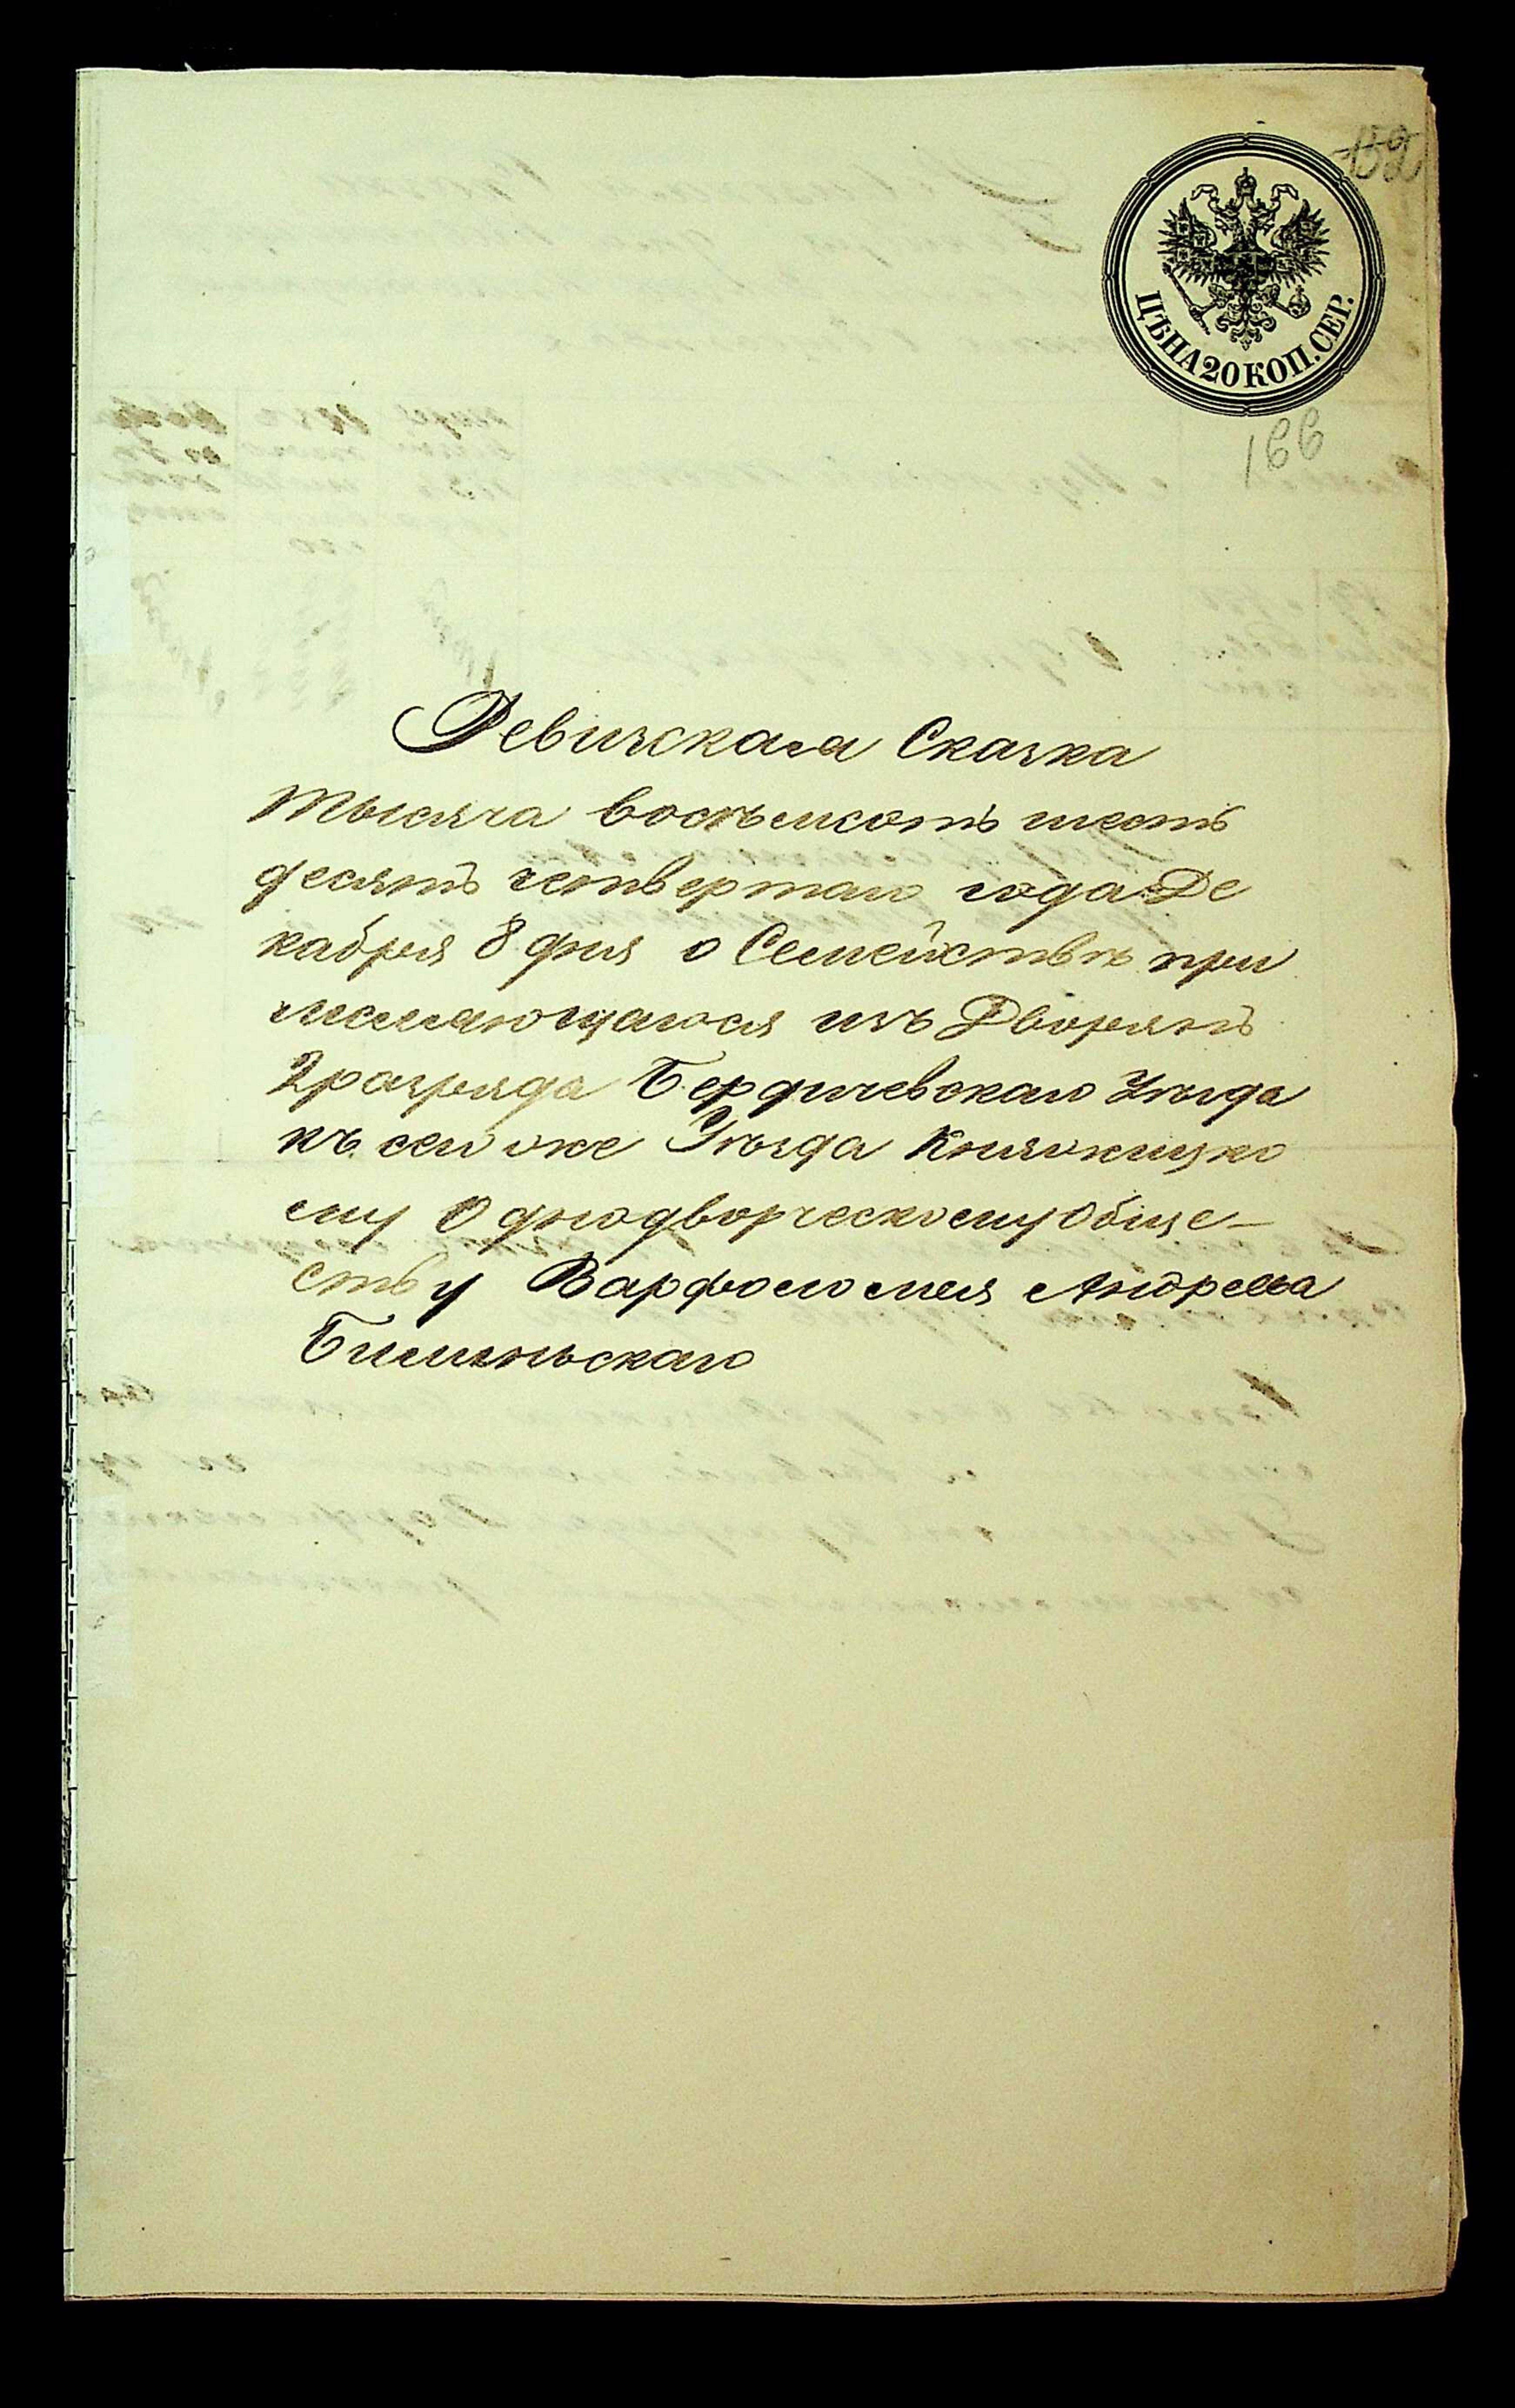 152
ЦѢНА 20 КОП. СЕР.
166
Ревизская Сказка
тысяча восемьсотъ шесть
десятъ четвертаго года Де
кабря 8 дня о Семействѣ при
числяющагося изъ Дворянъ
2 разряда Бердичевскаго Уѣзда
къ сему же Уѣзда Княжицко
му Однодворческому Обще-
ству Варфоломея Андреева